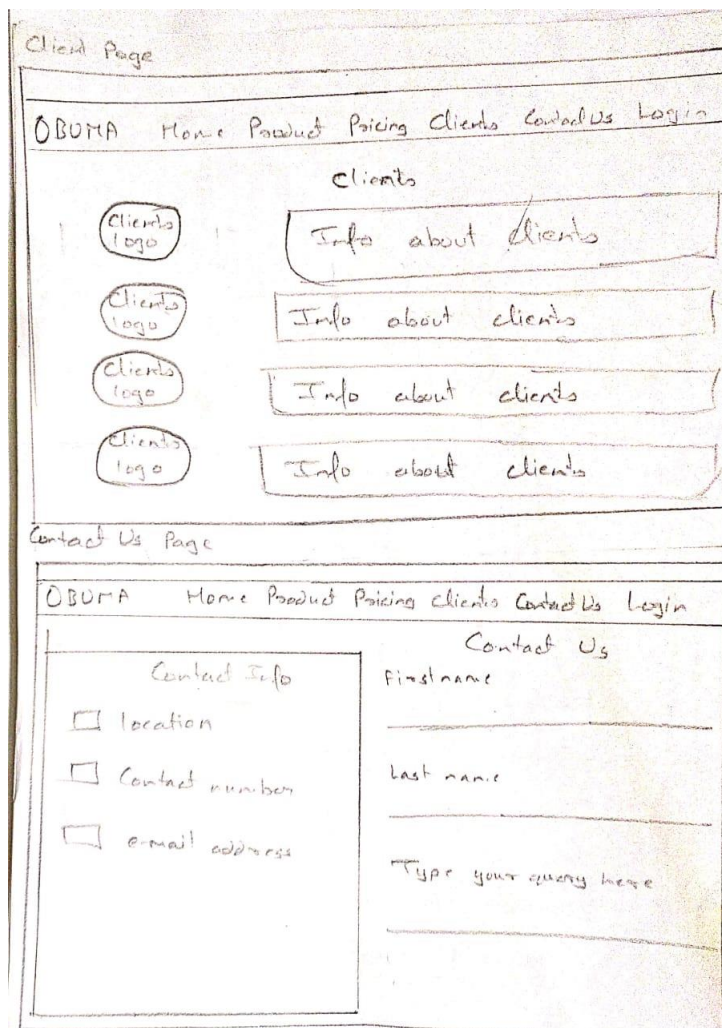 Client Page
OBUMA Home Product Pricing Clients Contact Us Login
Clients
Clients logo
Info about clients
Clients logo
Info about clients
Clients logo
Info about clients
Clients logo
Info about clients
Contact Us Page
OBUMA Home Product Pricing Clients Contact Us Login
Contact Info
location
Contact number
e-mail address
Contact Us
Firstname
Last name
Type your query here